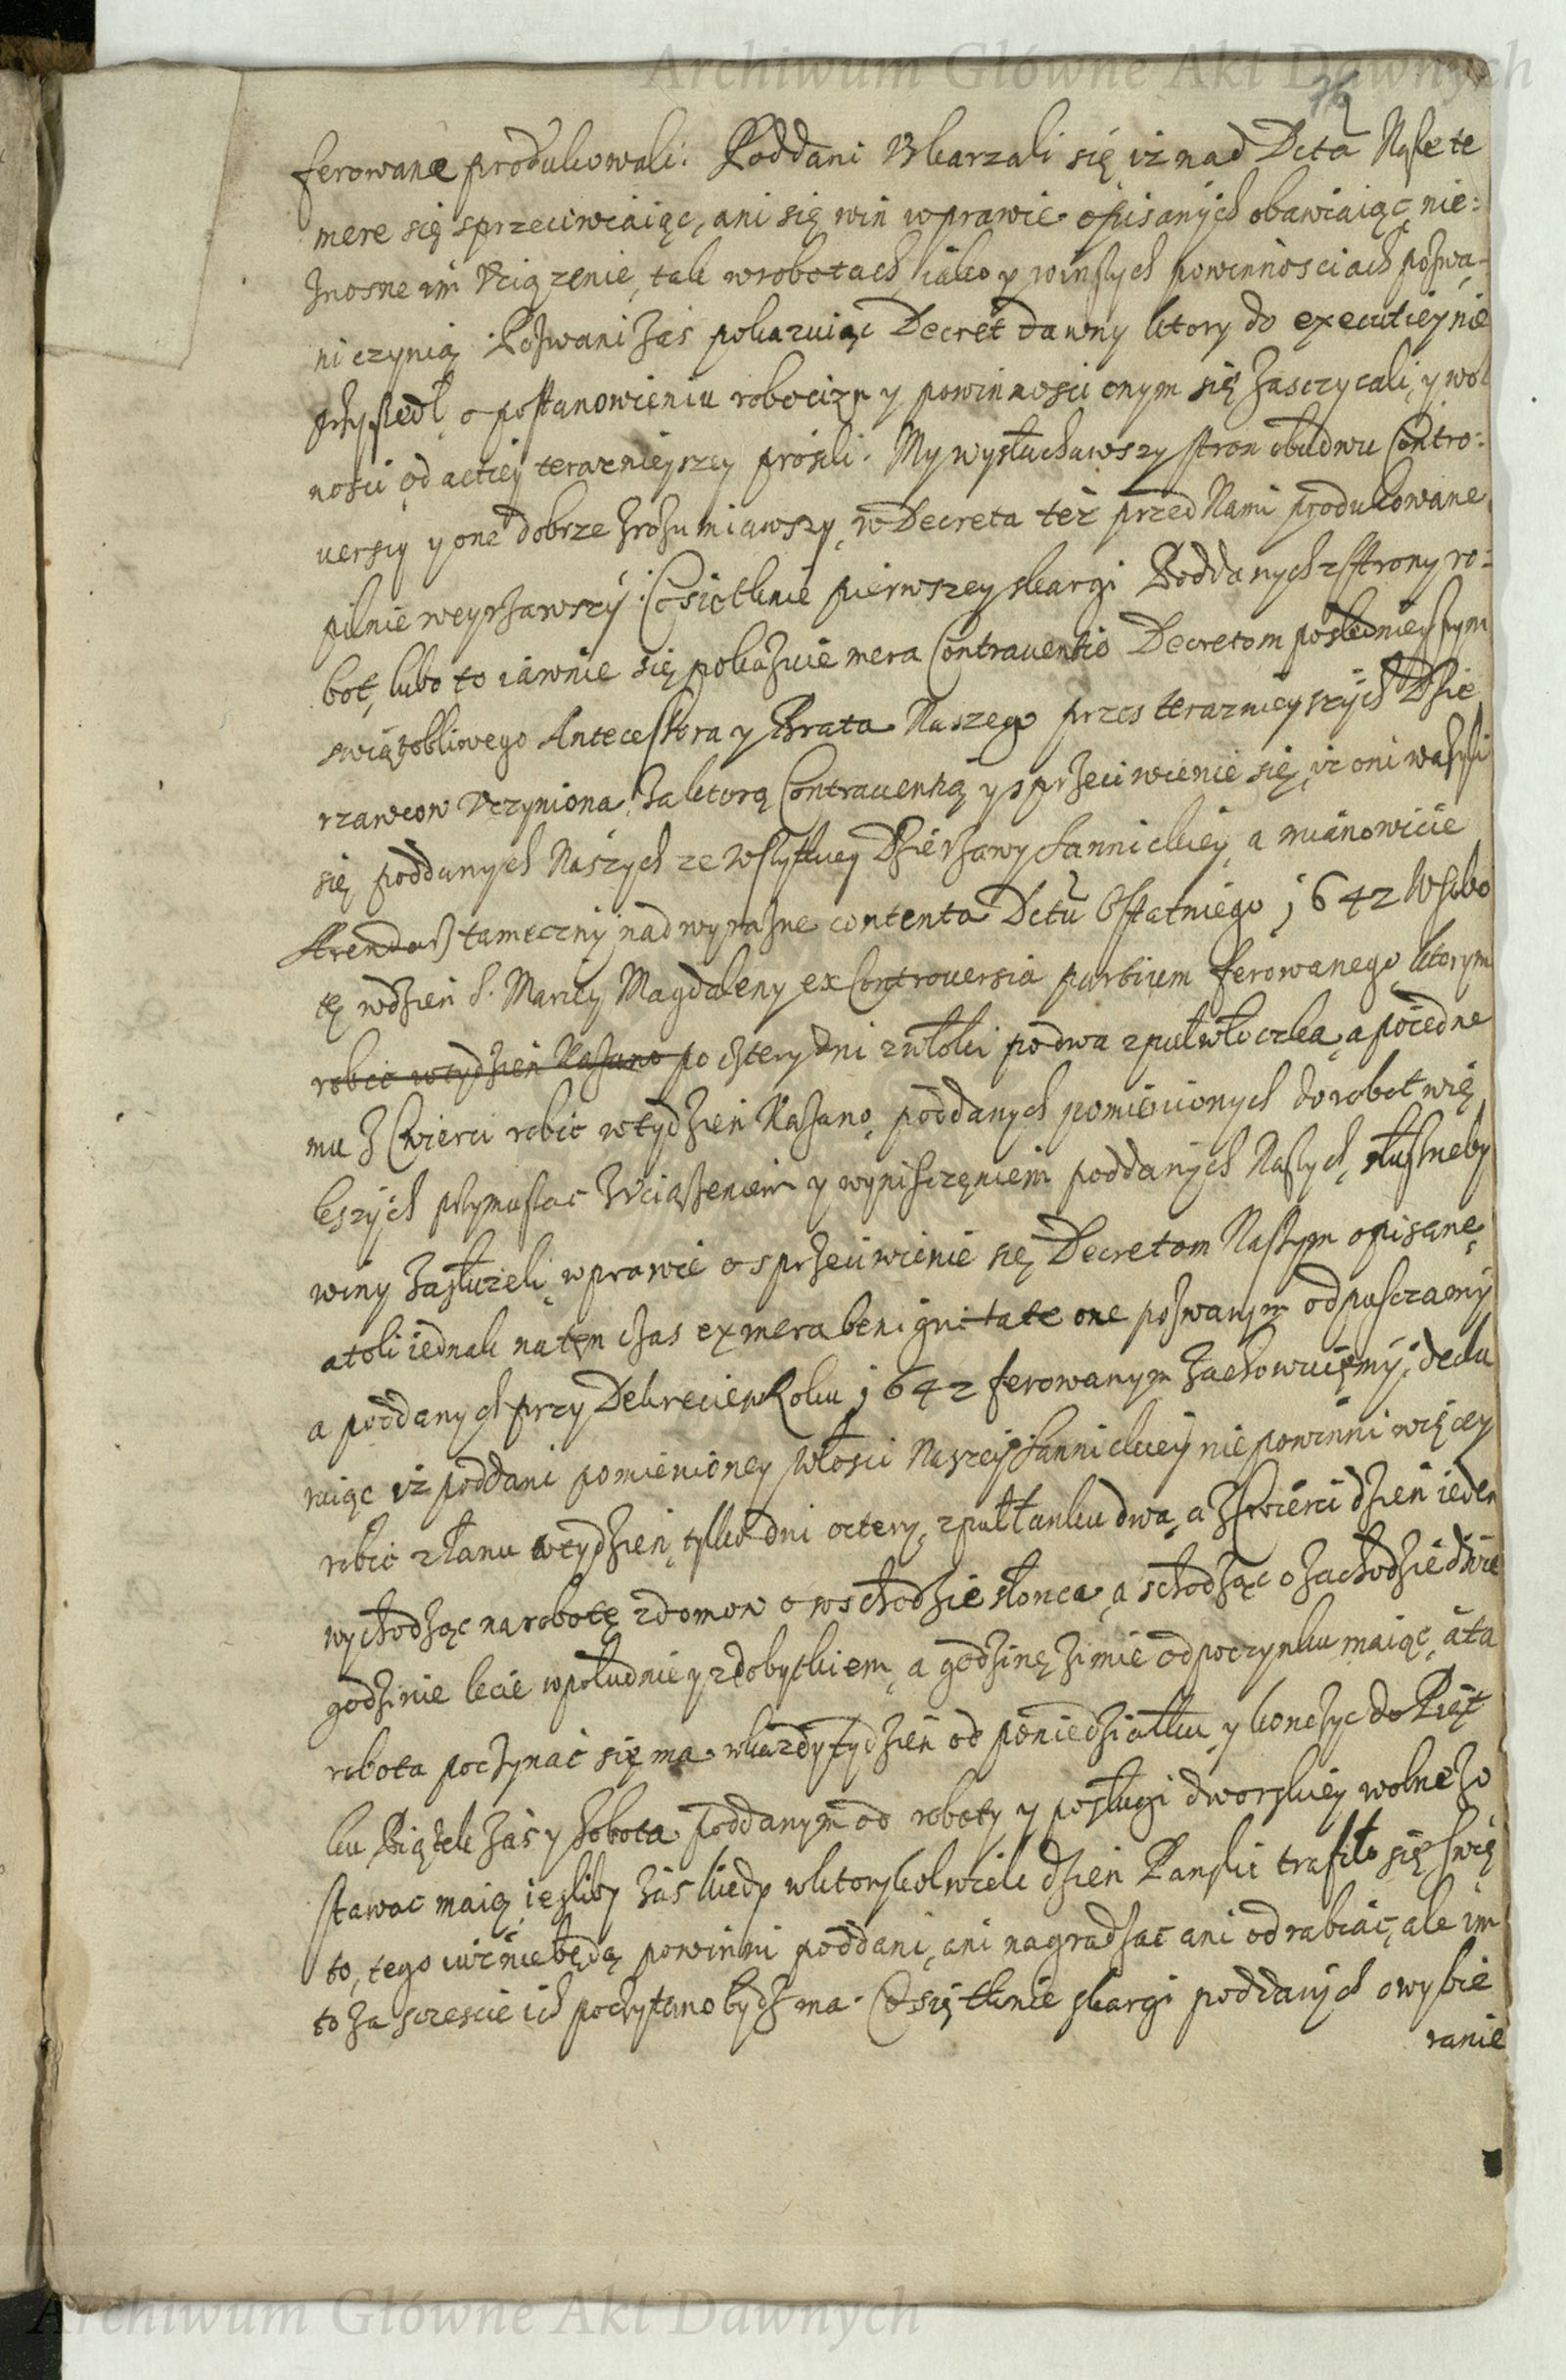 Archiwum Główne Akt Dawnych
76
ferowane produkowali: Poddani Uskarzali się iz nad Dcta Nasze te
mere się sprzeciwiaiąc, ani się win w prawie opisanych obawiaiąc nie:
znosne im Uciązenie, tak w robotach iako y w inszych powinnosciach pozwa-
ni czynią. Pozwani zas pokazuiąc Decret dawny ktory do executiey nie
przyszedł, o postanowieniu robocizn y powinnosci onym się zasczycali, y wol
nosci od actiey terazniejszey prosili. My wysłuchawszy stron obudwu Contro:
uersiy y one dobrze zrozumiawszy, w Decreta też przed Nami produkowane
pilnie weyrzawszy: Cosietknie pierwszey skargi Poddanych z strony ro:
bot, lubo to iawnie się pokazuie mera Contrauentio Decretom posledniejszym
swiątobliwego Antecessora y Brata Naszego przes terazniejszych Dzie
rzawcow Uczyniona, Za ktorą Contrauentią y sprzeciwienie się, iz oni wazyli
się poddanych Naszych ze wszystkiey Dzierzawy Sannickiey, a mianowicie
Arendarz tameczny nad wyrazne contenta Dctu Ostatniego 1642 w Sobo
tę w dzien S. Mariey Magdaleny ex Controuersia partium ferowanego, ktorym
robic w tydzien kazano po cztery dni z włoki po dwa z puł włoczka, a po iedne
mu z Cwierci robic w tydzien kazano, poddanych pomienionych do robot wię
kszych przymuszac z Uciązeniem y wyniszczeniem poddanych Naszych, słuszneby
winy zasłuzeli, w prawie o sprzeciwienie się Decretom Naszym opisane,
atoli iednak na ten czas ex mera benignitate one pozwanym odpuszczamy
a poddanych przy Dekrecie w Roku 1642 ferowanym zachowuiemy; dekla
ruiąc iz poddani pomienioney włosci Naszey Sannickiey nie powinni więcey
robic z łanu w tydzien, tylko dni cztery, z puł łanku dwa, a z Cwierci dzien ieden
wychodząc na robotę z domow o wschodzie słonca, a schodząc o zachodzie dwie
godzinie lecie w południe y z dobytkiem, a godzinę zimie odpoczynku maiąc, a ta
robota poczynac się ma w kazdy tydzien od poniedziałku, y konczyc do Piąt
ku Piątek zas y Sobota poddanym od roboty y posługi dworskiey wolne zo
stawac maią, iesliby zas kiedy w ktorykolwiek dzien Panski trafiło się swię
to, tego iuz nie będą powinni poddani, ani nagradzac ani odrabiac, ale im
to za szczescie ich poczytano bydz ma. Cosiętknie skargi poddanych o wybie
ranie
Archiwum Główne Akt Dawnych